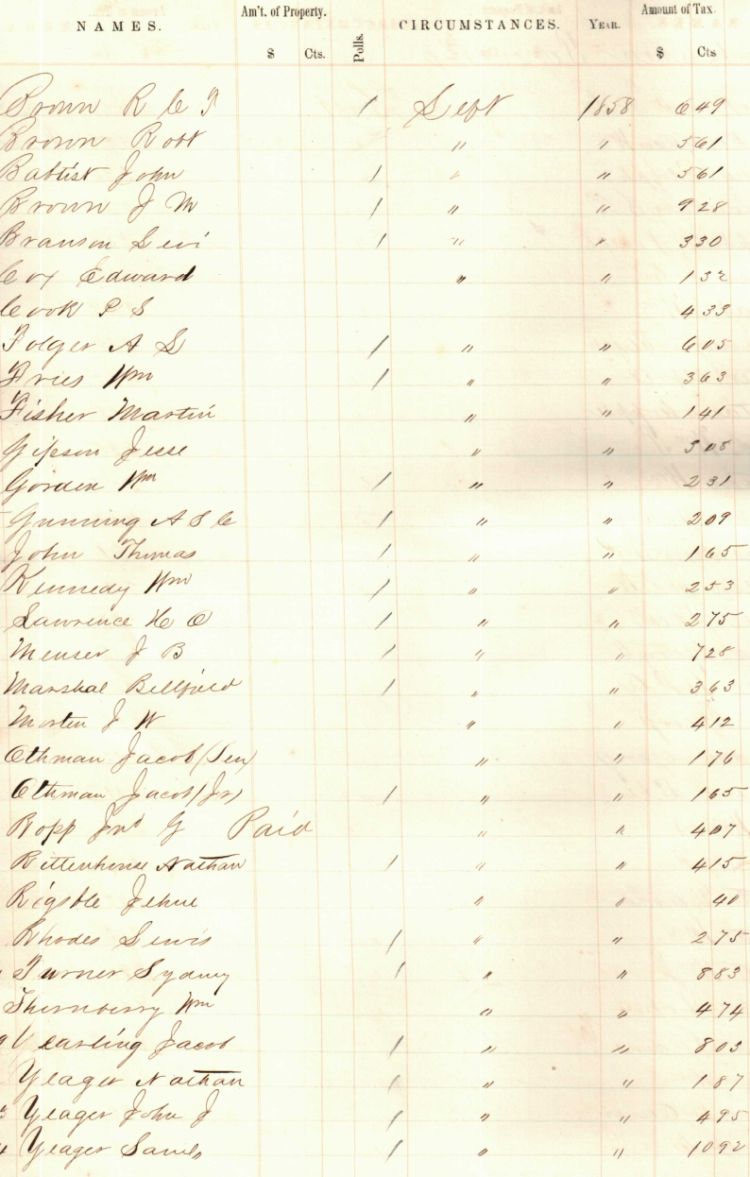 NAMES. Am't. of Property. Polls. CIRCUMSTANCES. YEAR. Amount of Tax.
$ Cts. $ Cts
Brown R C T 1 Sept 1858 6 49
Brown Robt " " 5 61
Babtist John 1 " " 5 61
Brown J M 1 " " 9 28
Branson Levi 1 " " 3 30
Cox Edward " " 1 32
Cook P S 4 33
Folger A S 1 " " 6 05
Fries Wm 1 " " 3 63
Fisher Martin " " 1 41
Gipson Jesse " " 3 08
Gorden Wm 1 " " 2 31
Gunning A S C 1 " " 2 09
John Thomas 1 " " 1 65
Kennedy Wm 1 " " 2 53
Lawrence H O 1 " " 2 75
Menser J B 1 " " 7 28
Marshal Bellfield 1 " " 3 63
Morten J W " " 4 12
Othman Jacob (Sen) " " 1 76
Othman Jacob (Jr) 1 " " 1 65
Ropp Jno G Paid " " 4 07
Rittenhouse Nathan 1 " " 4 15
Rigsble Jehue " " 40
Rhodes Lewis 1 " " 2 75
Turner Sydney 1 " " 8 83
Thornberry Wm " " 4 74
Vearling Jacob 1 " " 8 03
Yeager Nathan 1 " " 1 87
Yeager John J 1 " " 4 95
Yeager Saml 1 " " 10 92